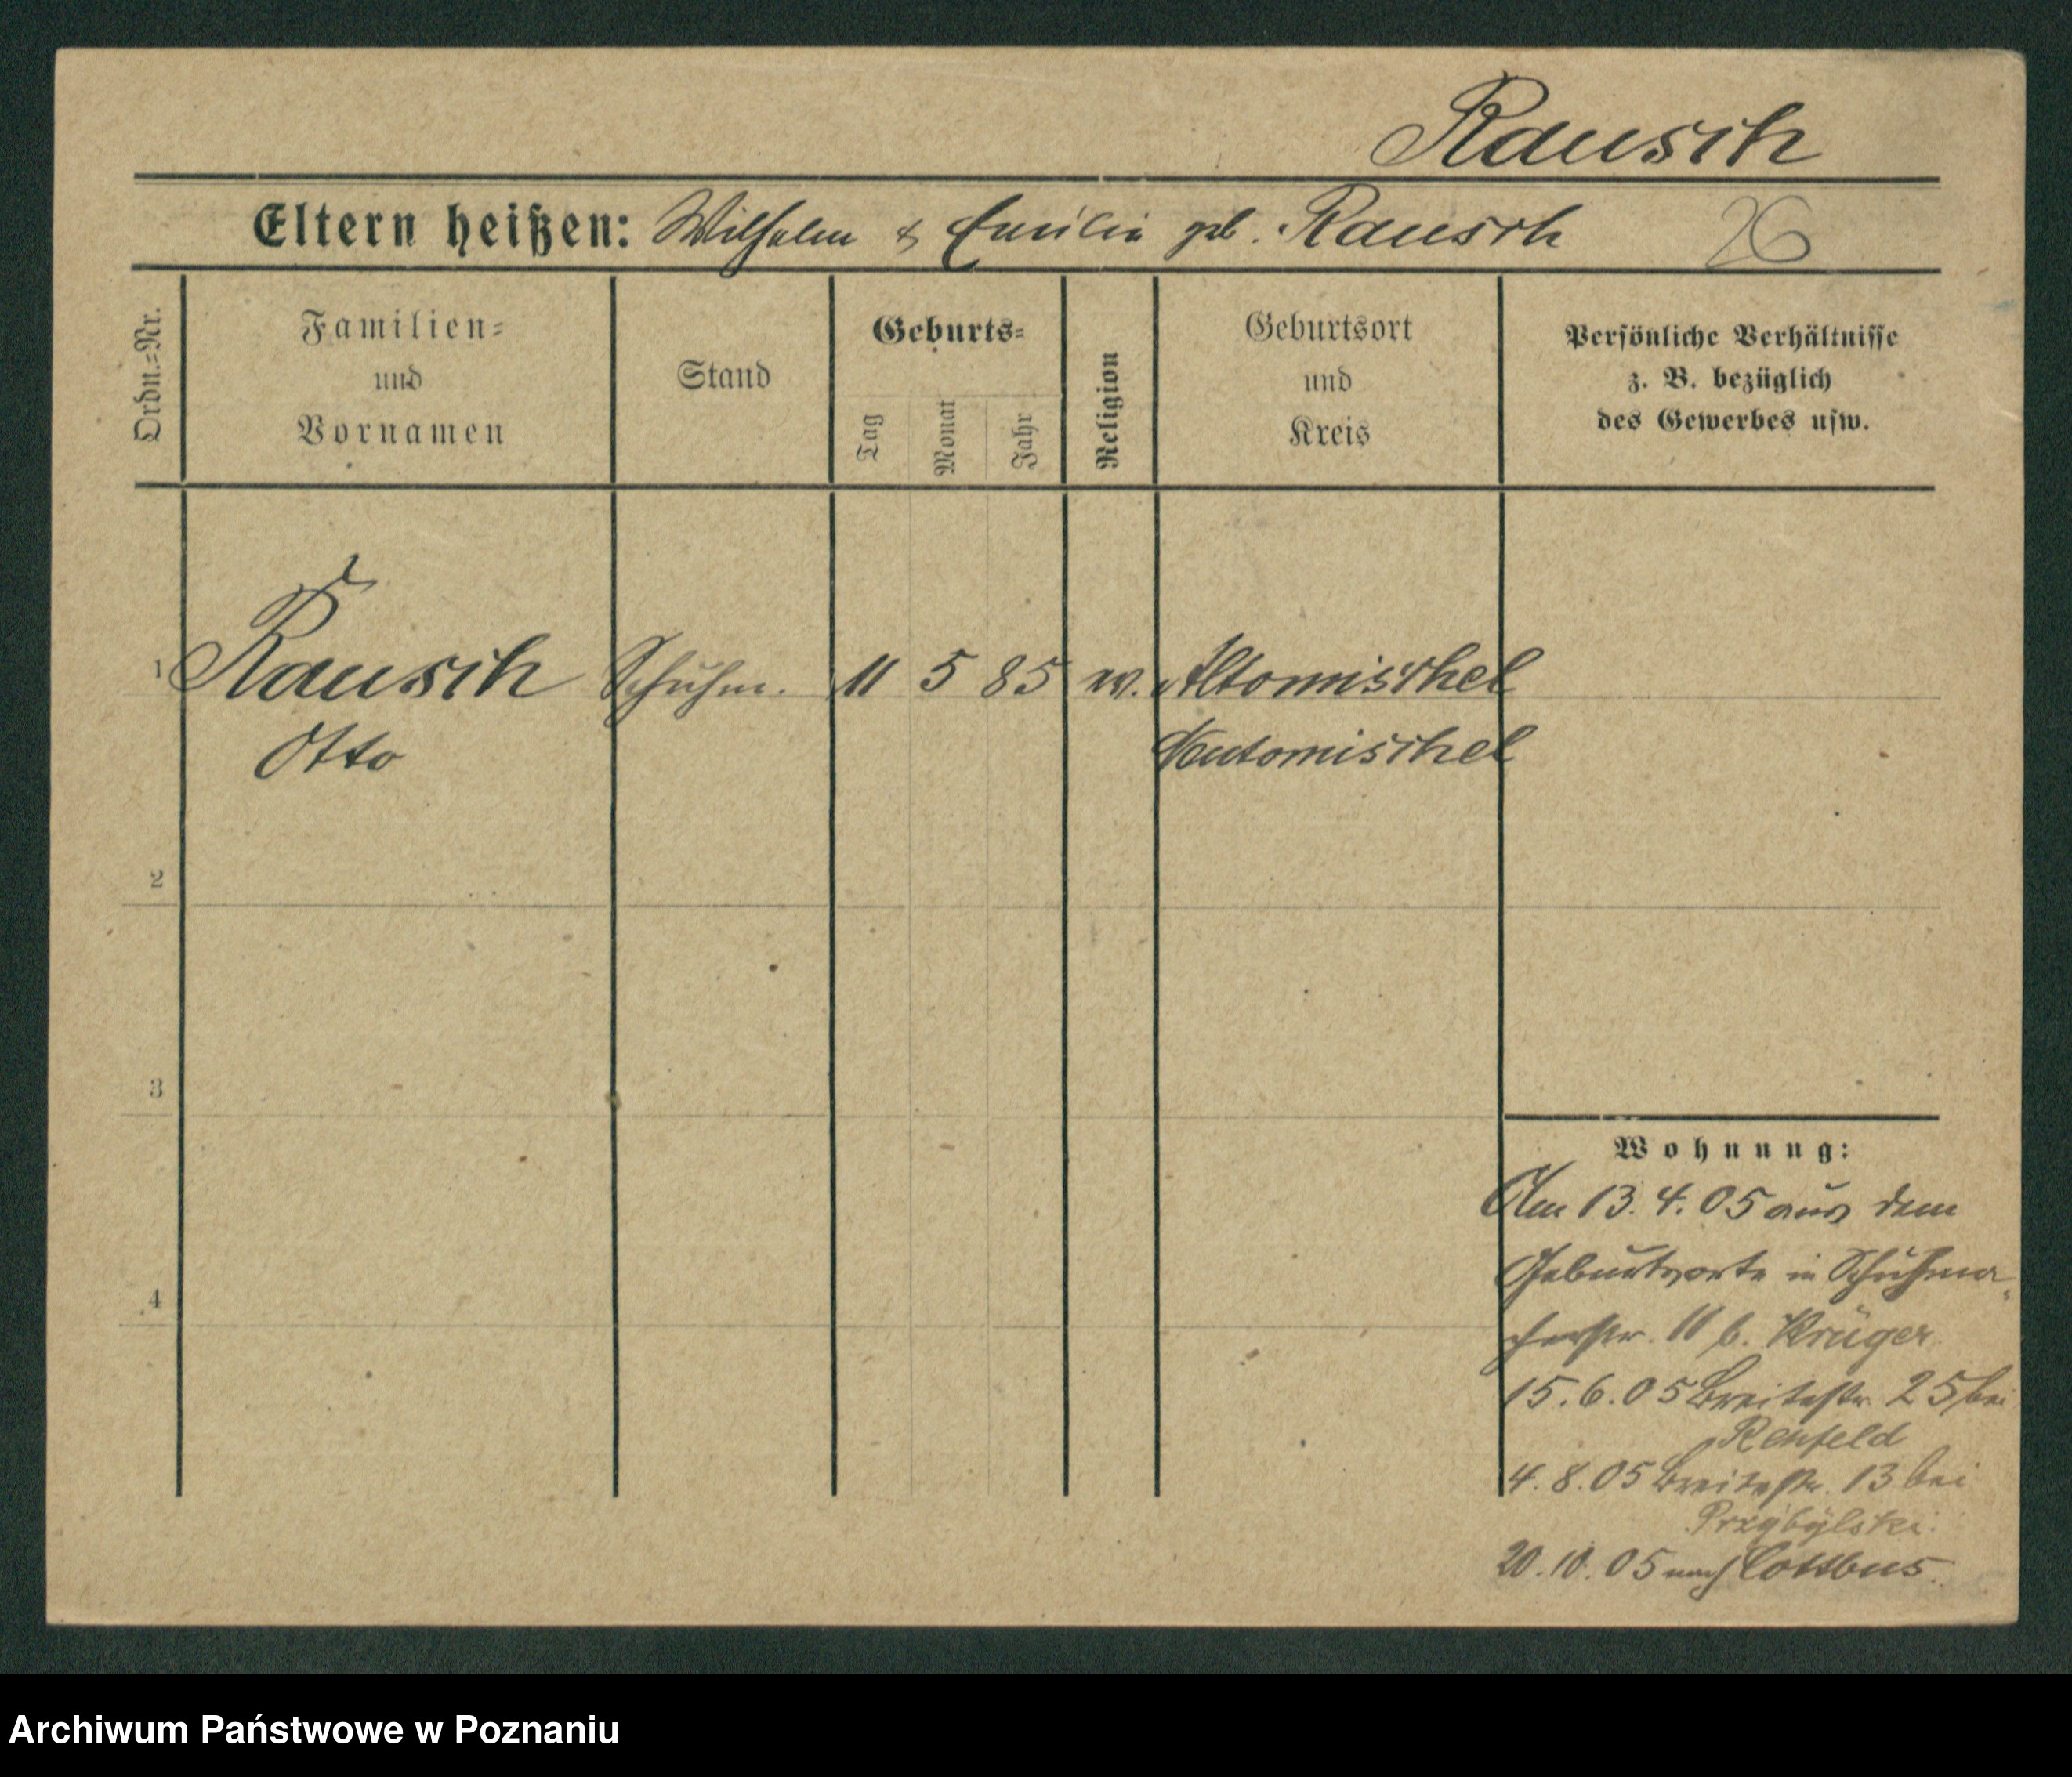 Rausch
Eltern heißen: Wilhelm & Emilie geb. Rausch 26
Ordn.=Nr.
Familien=
und
Vornamen
Stand
Geburts=
Tag
Monat
Jahr
Religion
Geburtsort
und
Kreis
Persönliche Verhältnisse
z. B. bezüglich
des Gewerbes usw.
1 Rausch Schuhm. 11 5 85 ev. Alttomischel
Otto Neutomischel
2
3
4
Wohnung:
Am 13.4.05 aus dem
Geburtsorte in Schuhma-
cherstr. 11 b. Krüger
15.6.05 Breitestr. 25 bei
Renfeld
4.8.05 Breitestr. 13 bei
Przybylski.
20.10.05 nach Cottbus.
Archiwum Państwowe w Poznaniu